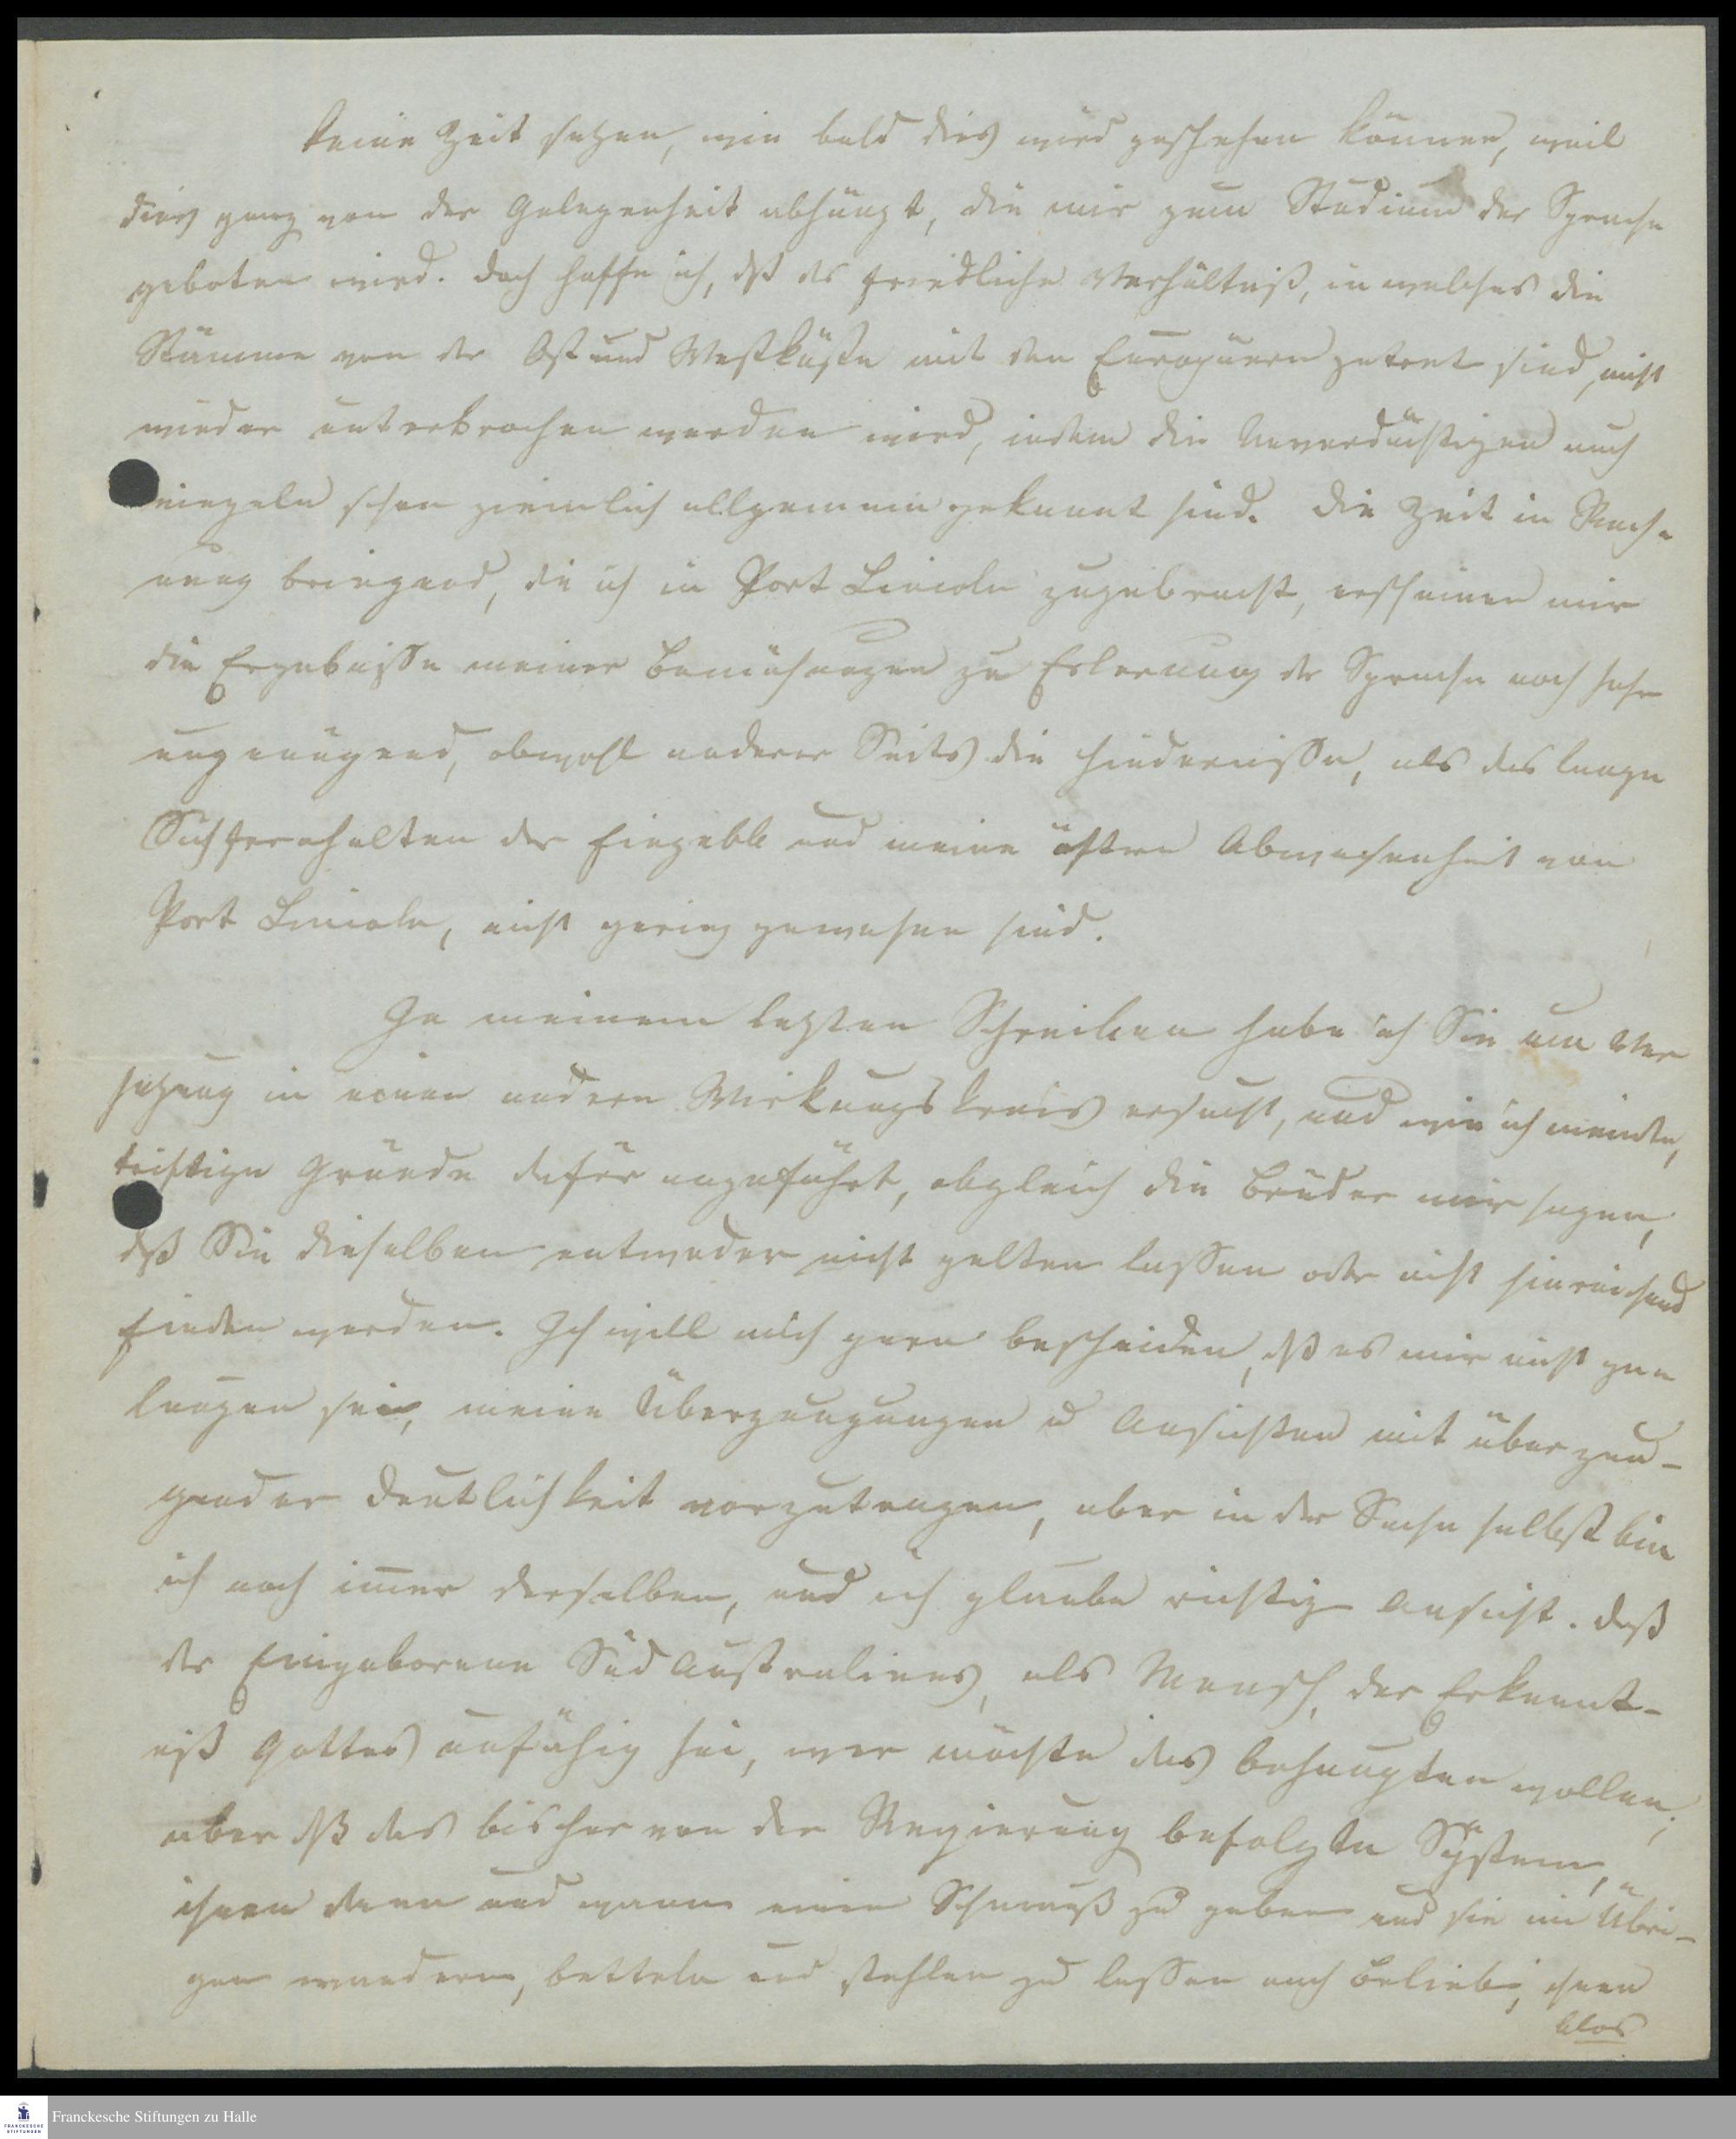 keine Zeit setzen, wie bald dies wird geschehen können, weil
dies ganz von der Gelegenheit abhängt, die mir zum Studium der Sprache
geboten wird. Doch hoffe ich, dß das friedliche Verhältniß, in welches die
Stämme von der Ost und Westküste mit den Europäern getret sind, nicht
wieder unterbrochen werden wird, indem die
einzeln schon ziemlich allgemein gekannt sind. Die Zeit in Rech-
nung bringend, die ich in Port Lincoln zugebracht, erscheinen mir
die Ergebnisse meiner Bemühungen zu Erlernung der Sprache noch sehr
ungenügend, obwohl anderer Seits die Hindernisse, als das lange
Sichfernhalten der Eingebb und meine öftere Abwesenheit von
Port Lincoln, nicht gering gewesen sind.
In meinem letzten Schreiben habe ich Sie um Ver
setzung in einen andern Wirkungskreis ersucht, und wie ich meinte,
triftige Gründe dafür angeführt, obgleich die Brüder mir sagen,
dß Sie dieselben entweder nicht gelten lassen oder nicht hinreichend
finden werden. Ich will mich gern bescheiden, dß es mir nicht ge-
lungen sei, meine Überzeugungen u Ansichten mit überzeu-
gender Deutlichkeit vorzutragen, aber in der Sache selbst bin
ich noch immer derselben, und ich glaube richtige Ansicht. Daß
der Eingeborene Süd Australiens, als Mensch, der Erkennt-
niß Gottes unfähig sei, wer möchte das behaupten wollen;
aber dß das bisher von der Regierung befolgte System,
ihnen dann und wann einen Schmauß zu geben und sie im Übri-
gen wandern, betteln und stehlen zu lassen nach Belieb, ihnen
blos
Franckesche Stiftungen zu Halle
FRANCKESCHE
STIFTUNGEN